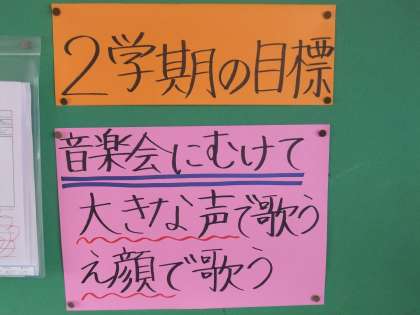 2学期の目標
音楽会にむけて
大きな声で歌う
え顔で歌う